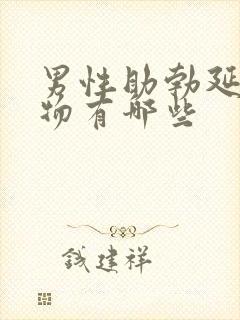 男性助勃延
物有哪些
钱建祥